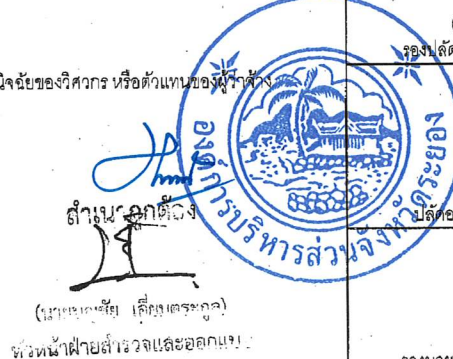 รองปลัด
นิจฉัยของวิศวกร หรือตัวแทนของผู้ว่าจ้าง
องค์การบริหารส่วนจังหวัดระยอง
สำเนาถูกต้อง
ปลัดอ
หัวหน้าฝ่ายสำรวจและออกแบบ